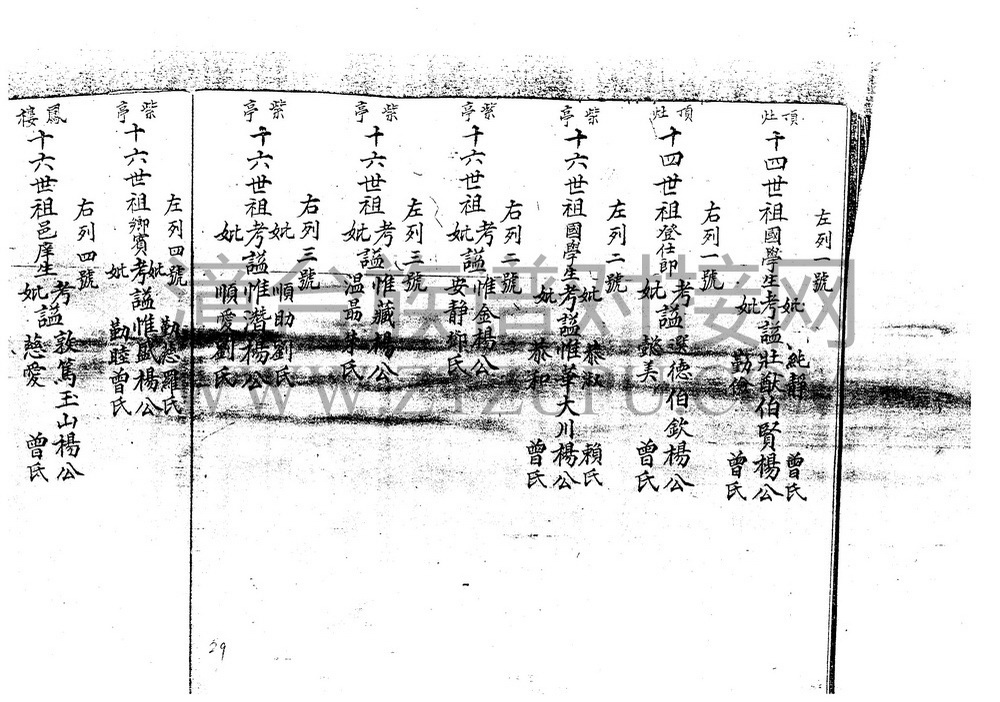 左列一號
妣 純靜 曾氏
頂灶 十四世祖國學生考謚壯猷伯賢楊公
妣 勤儉 曾氏
右列一號
頂灶 十四世祖登仕郎考謚 德伯欽楊公
妣 懿美 曾氏
左列二號
妣 恭淑 賴氏
紫亭 十六世祖國學生考謚惟華大川楊公
妣 恭和 曾氏
右列二號
紫亭 十六世祖考謚惟金楊公
妣 安靜 氏
左列三號
紫亭 十六世祖考謚惟藏楊公
妣 溫 氏
右列三號
妣 順助劉氏
紫亭 十六世祖考謚惟潛楊公
妣 順愛劉氏
左列四號
妣 勤慈羅氏
紫亭 十六世祖鄉賓考謚惟盛楊公
妣 勤睦曾氏
右列四號
鳳樓 十六世祖邑庠生考謚敦篤玉山楊公
妣 慈愛 曾氏
29
漳台族譜对接网
WWW.ZTZUPU.COM